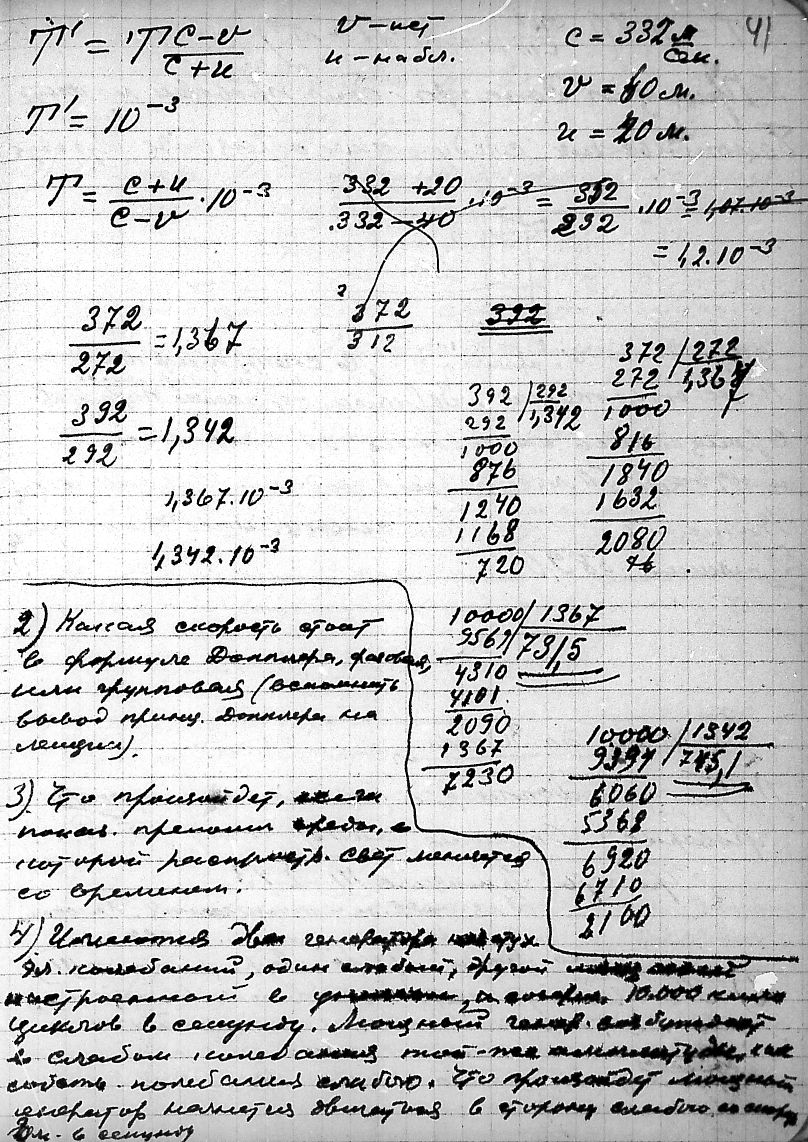 41
T' = T c-v / c+u
v - ист
u - набл.
c = 332 м/сек.
v = 40 м.
u = 20 м.
T' = 10⁻³
T = c+u / c-v · 10⁻³
332 +20 / 332 -40 · 10⁻³ = 392 / 292 · 10⁻³ = 1,07·10⁻³
= 1,2·10⁻³
372 / 272 = 1,367
372 / 312
392
392 / 292 = 1,342
1,367·10⁻³
1,342·10⁻³
392 | 292
292 | 1,342
1000
876
1240
1168
720
372 | 272
272 | 1,367
1000
816
1840
1632
2080
76
2) Какая скорость стоит
в формуле Допплера, фазовая,
или групповая (вспомнить
вывод принц. Допплера на
лекции).
3) Что произойдет, если
показ. преломл. среды, в
которой распростр. свет меняется
со временем.
10000 | 1367
9569 | 731,5
4310
4101
2090
1367
7230
10000 | 1342
9394 | 745,1
6060
5368
6920
6710
2100
4) Имеются два генератора
эл. колебаний, один слабый, другой
настроенный в 10.000 кило
циклов в секунду. Мощный генер. возбуждает
в слабом колебания той-же амплитуды, как
собств. колебания слабого. Что произойдет мощный
генератор начнет двигаться в сторону слабого со скор.
м. в секунду